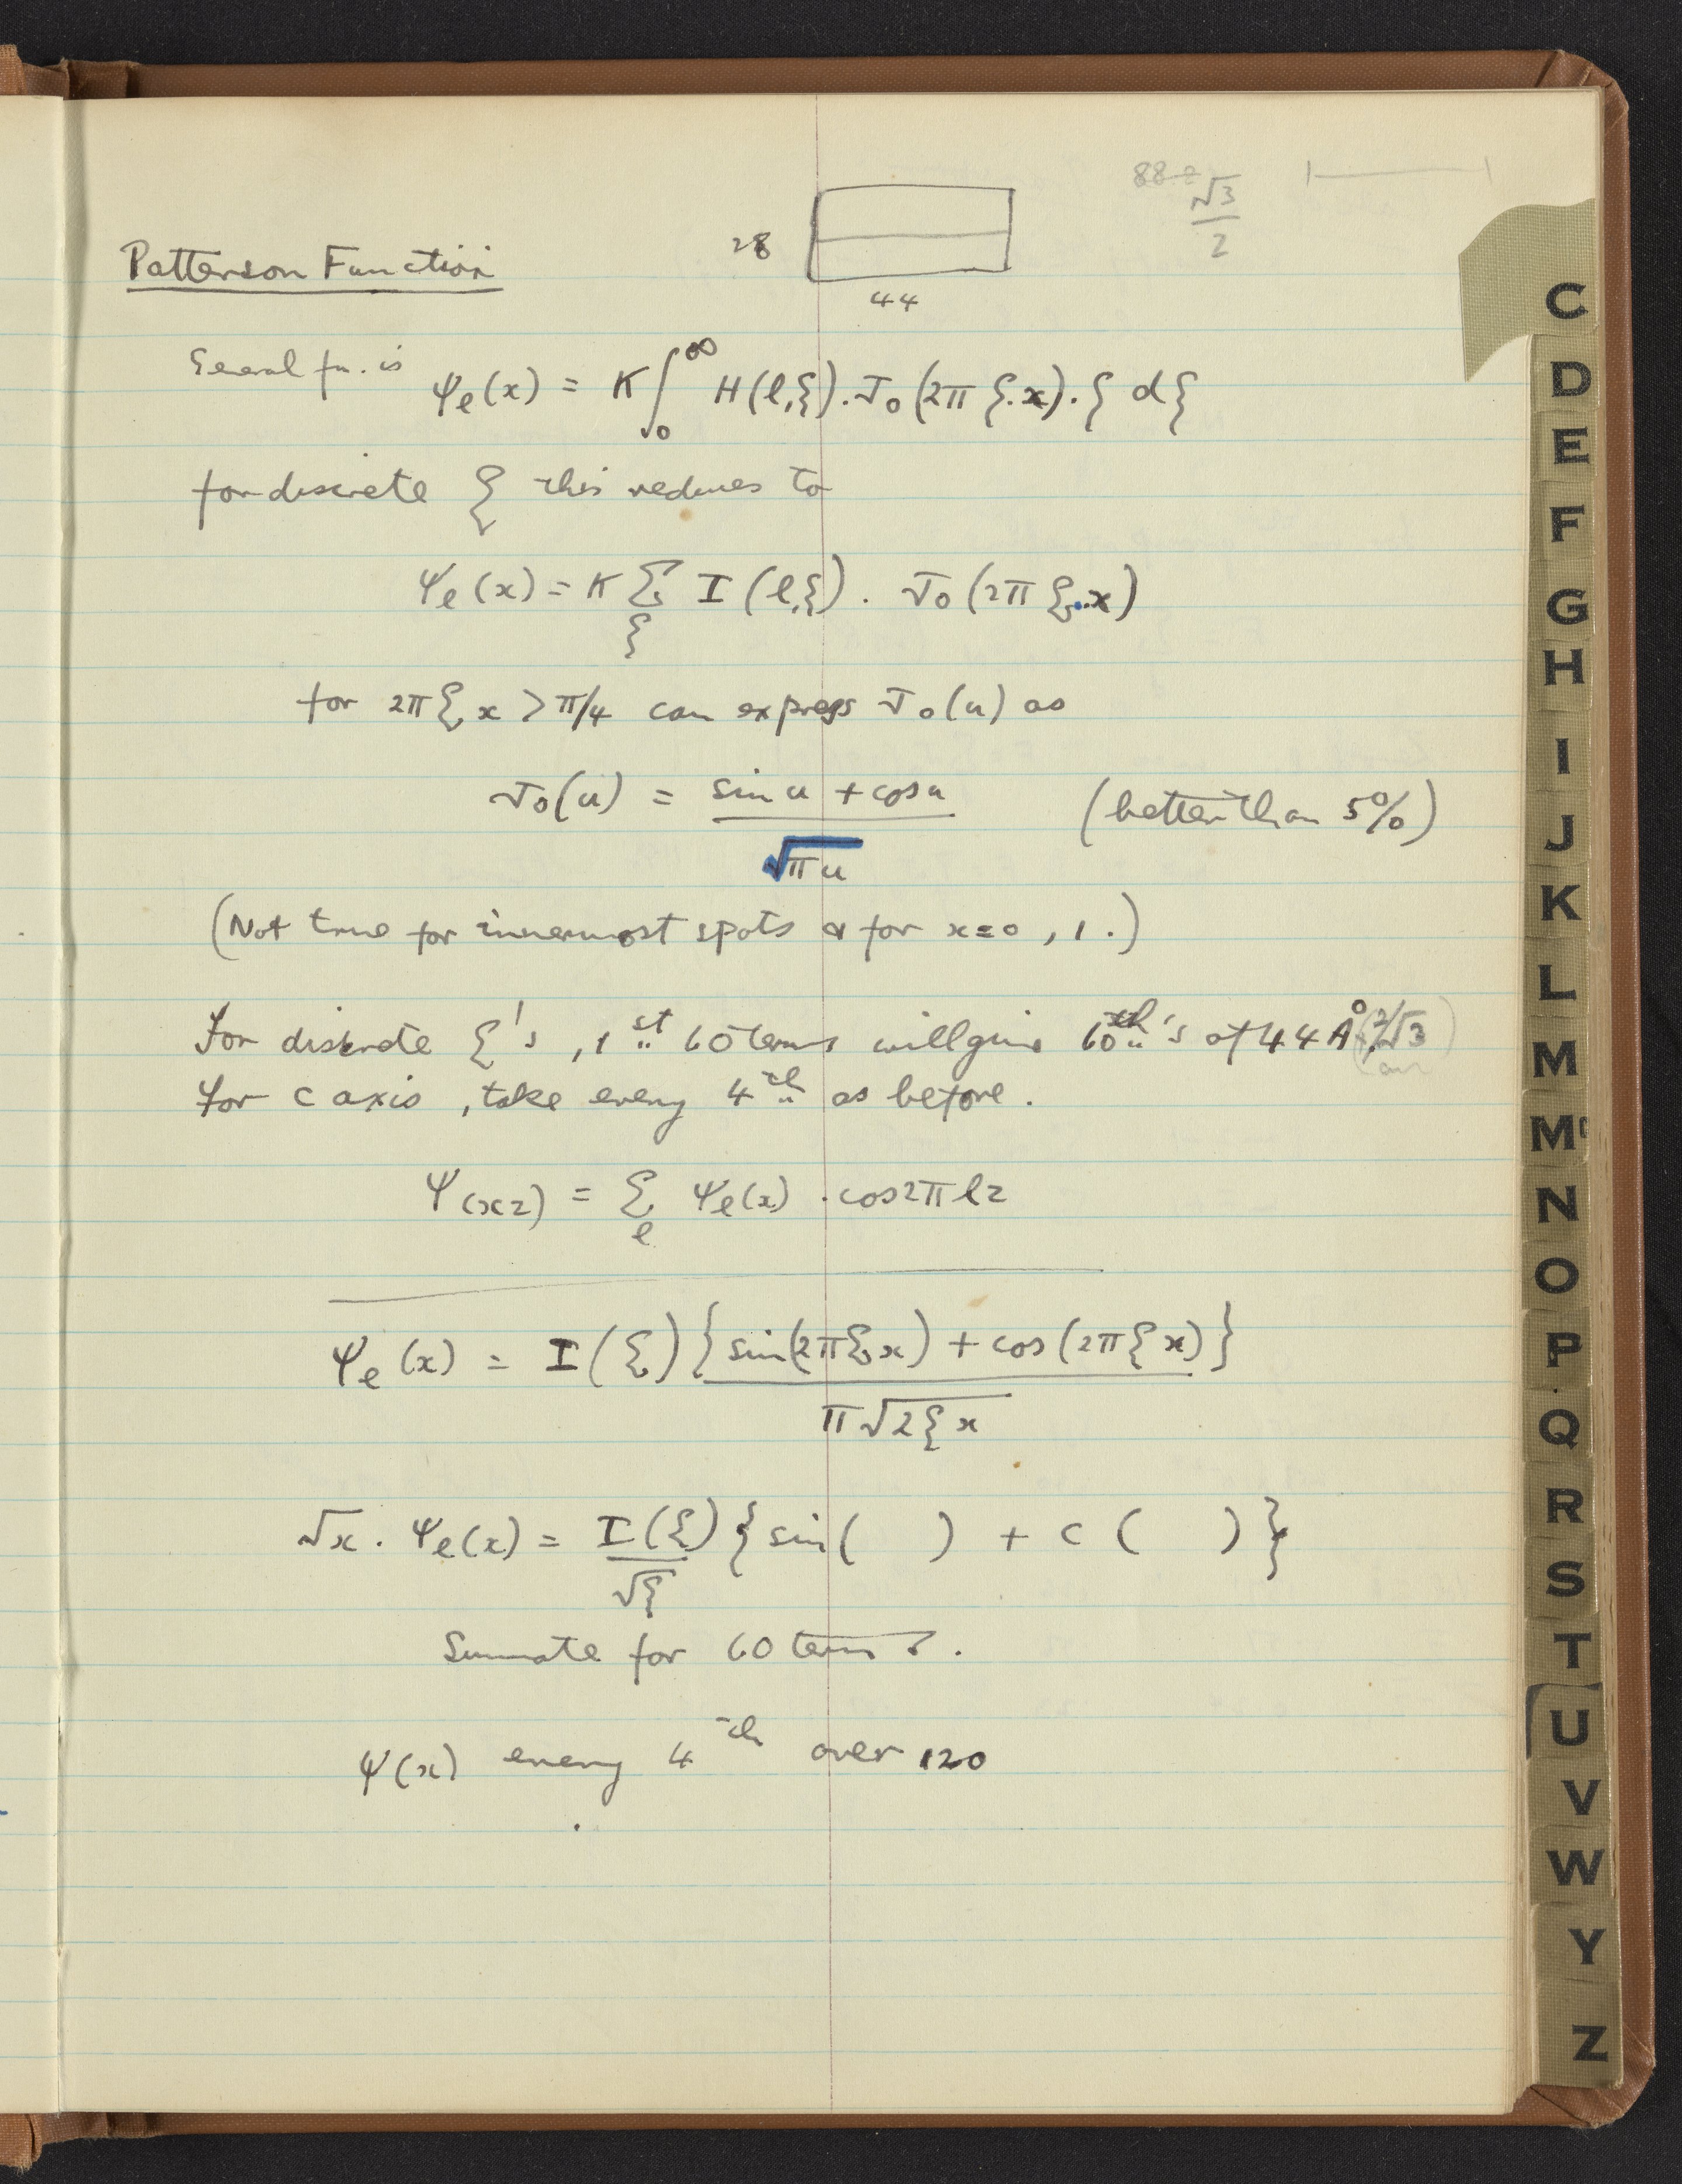 88-2
√3
2
28
Patterson Function
44
General fn. is ψℓ(x) = K∫₀^∞ H(ℓ,ξ).J₀(2πξ.x).ξ dξ
for discrete ξ this reduces to
ψℓ(x) = K Σ I(ℓ,ξ). J₀(2πξ.x)
ξ
for 2πξx > π/4 can express J₀(u) as
J₀(u) = sin u + cos u (better than 5%)
√πu
(Not true for innermost spots or for x=0, 1.)
For discrete ξ's, 1st 60 terms will give 60th's of 44Å (2/√3)
For c axis, take every 4th as before.
ψ(xz) = Σ ψℓ(x) . cos2πℓz
ℓ
ψℓ(x) = I(ξ){sin(2πξx) + cos(2πξx)}
π√2ξx
√x. ψℓ(x) = I(ξ){sin( ) + c( )}
√ξ
Summate for 60 terms.
ψ(x) every 4th over 120
C
D
E
F
G
H
I
J
K
L
M
Mc
N
O
P
Q
R
S
T
U
V
W
Y
Z